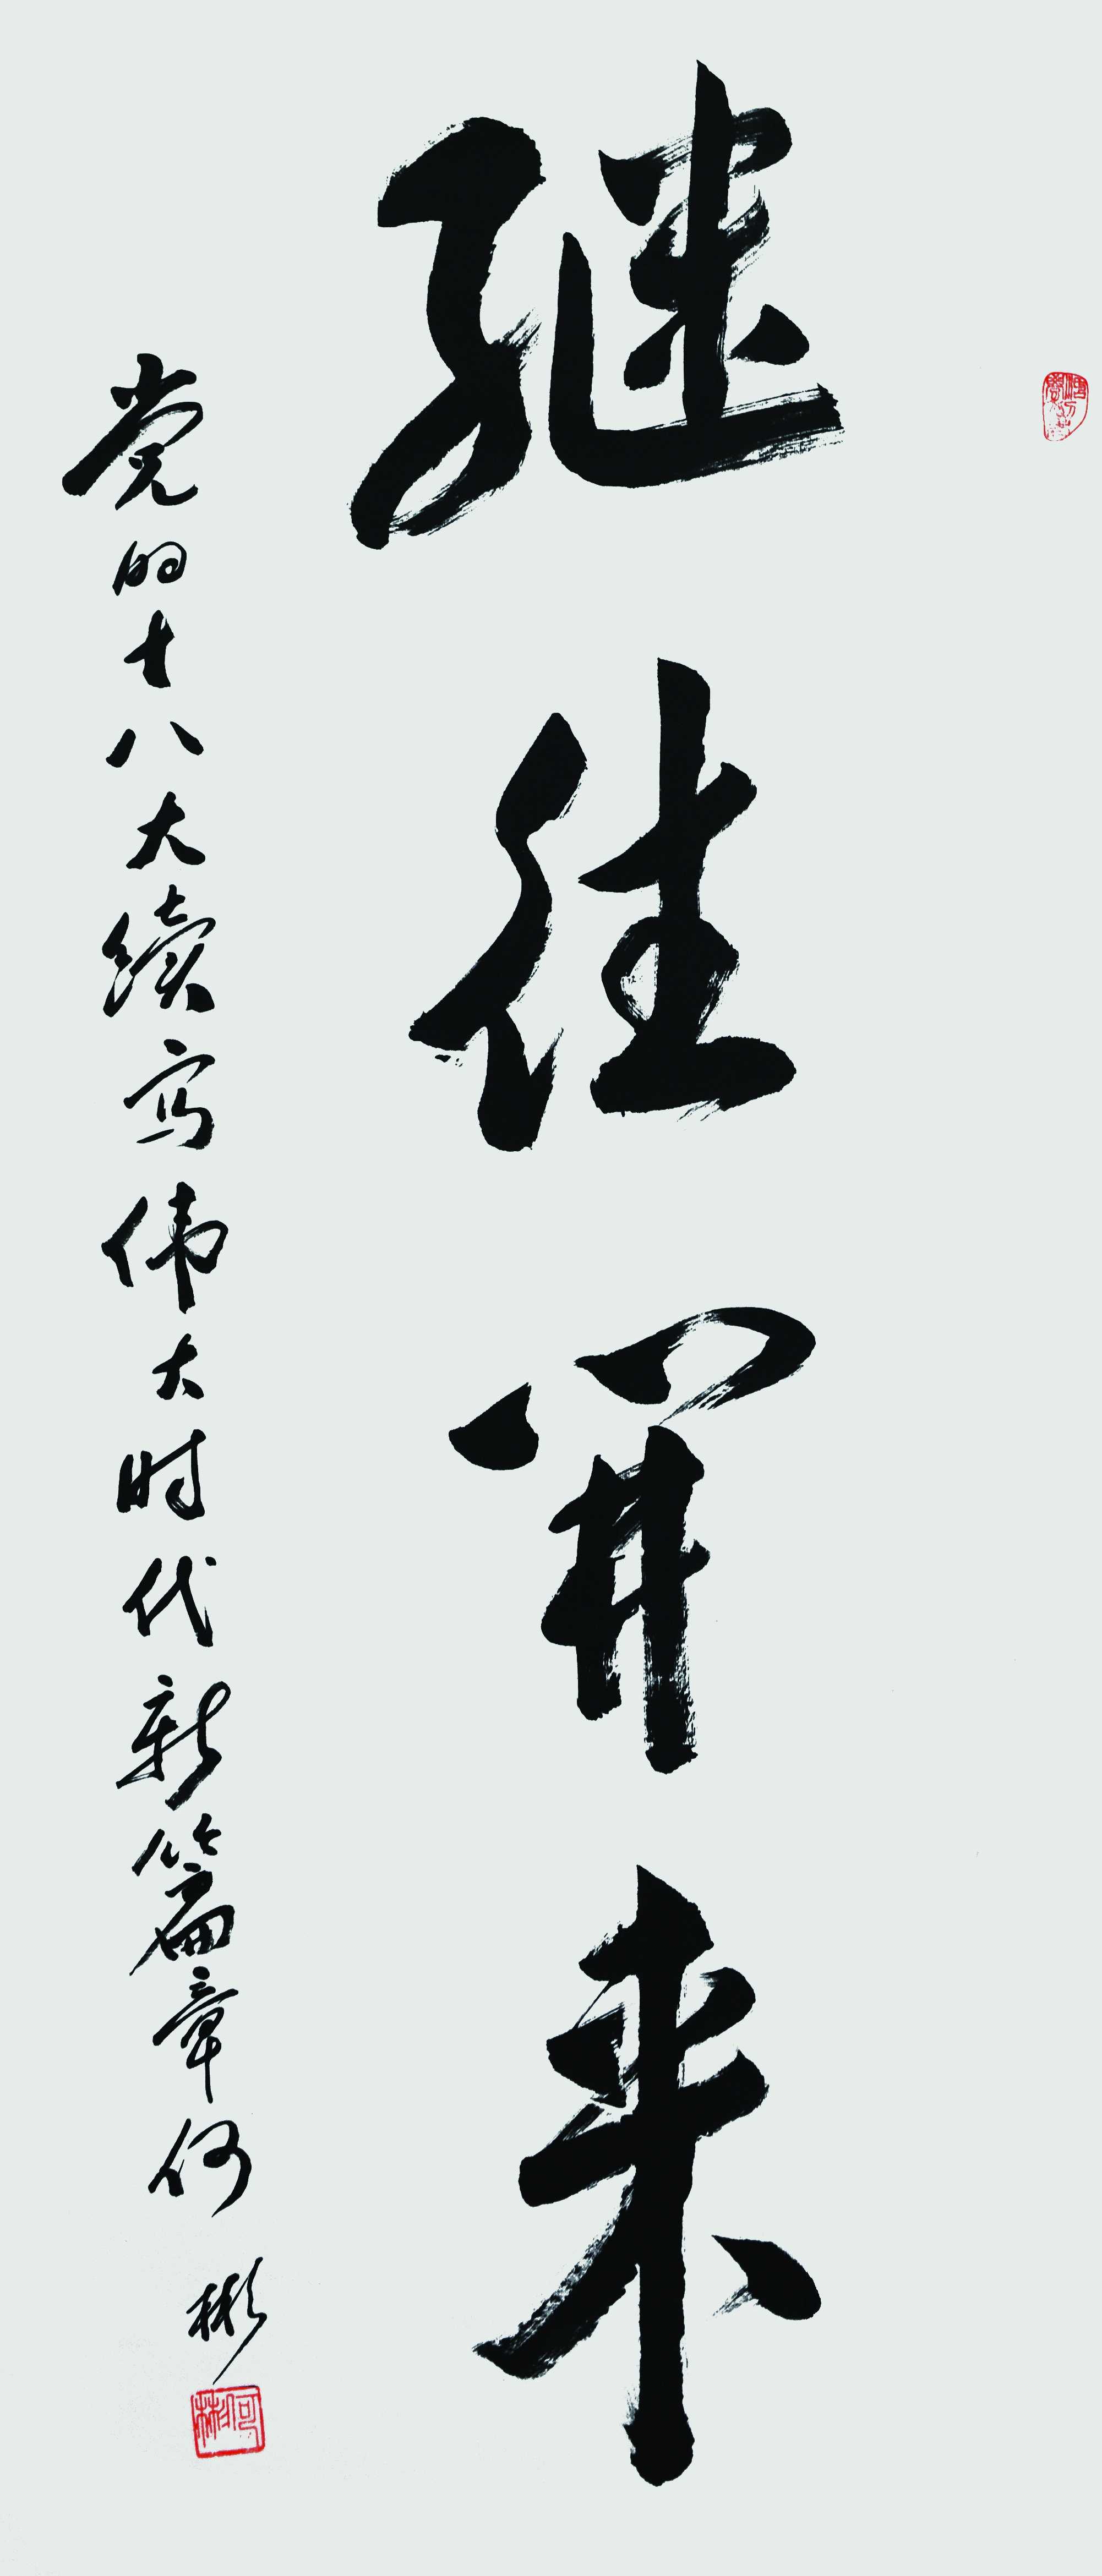 继往开来
党的十八大续写伟大时代新篇章何彬
何彬